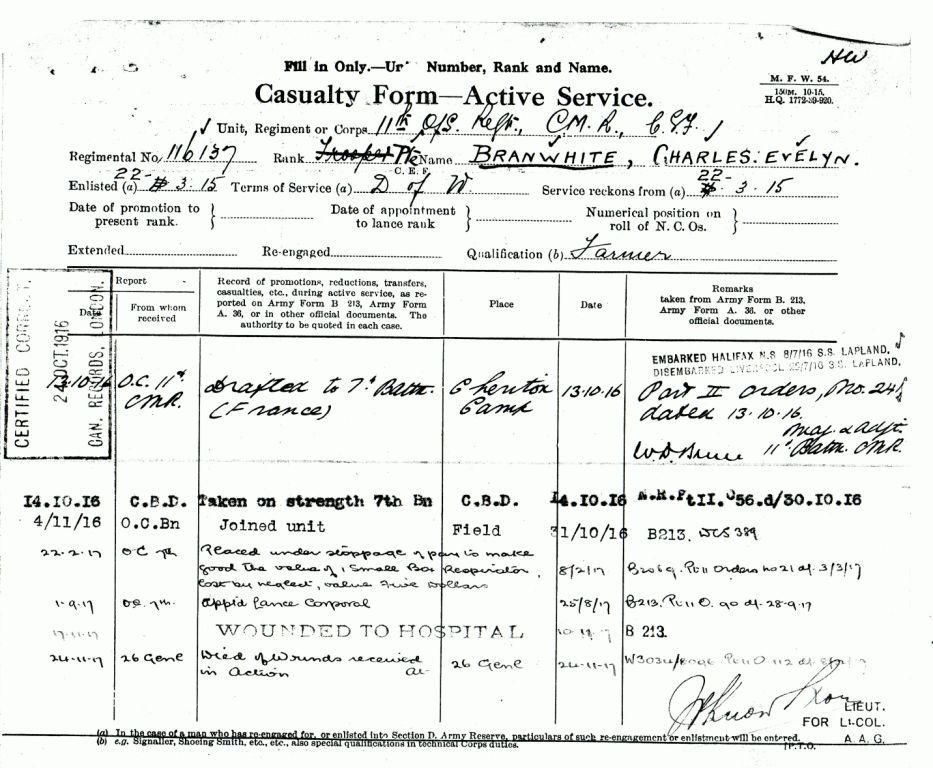 HW
Fill in Only.—Un Number, Rank and Name.
M. F. W. 54.
150M. 10-15.
H.Q. 1772-39-920.
Casualty Form—Active Service.
Unit, Regiment or Corps 11th O/S. Regt., C.M.R., C.E.F.
Regimental No. 116137 Rank Trooper Pte Name BRANWHITE, CHARLES EVELYN.
C. E. F.
22- 22-
Enlisted (a) 3.15 Terms of Service (a) D of W. Service reckons from (a) 3.15
Date of promotion to present rank. Date of appointment to lance rank Numerical position on roll of N. C. Os.
Extended Re-engaged Qualification (b) Farmer
Report
Date From whom received
Record of promotions, reductions, transfers, casualties, etc., during active service, as reported on Army Form B 213, Army Form A. 36, or in other official documents. The authority to be quoted in each case.
Place
Date
Remarks
taken from Army Form B. 213, Army Form A. 36. or other official documents.
CERTIFIED CORRECT.
OCT. 1916
CAN. RECORDS, LONDON.
EMBARKED HALIFAX N.S 8/7/16 S.S. LAPLAND,
DISEMBARKED LIVERPOOL 25/7/16 S.S. LAPLAND.
13.10.16 O.C. 11th CMR. Drafted to 7th Battn. (France) Cheriton Camp 13.10.16 Part II orders, No. 24
dated 13.10.16.
Maj. & Adjt.
W.D. Bruce 11th Battn. CMR.
14.10.16 C.B.D. Taken on strength 7th Bn C.B.D. 14.10.16 N.R.PtII.O56.d/30.10.16
4/11/16 O.C.Bn Joined unit Field 31/10/16 B213. DCS 389
22.2.17 OC 7th Placed under stoppage of pay to make
good the value of 1 Small Box Respirator, 8/2/17 B2069. Pt II Orders no 21 d/- 3/3/17
lost by neglect, value Five Dollars
1.9.17 OC. 7th. App'td Lance Corporal 25/8/17 B213. Pt II O. 90 d/- 28.9.17
17.11.17 WOUNDED TO HOSPITAL 10.11.17 B 213.
24.11.17 26 Genl Died of Wounds received 26 Genl 24.11.17 W3034/ Pt II O 112 d/-
in Action at
LIEUT.
FOR Lt-COL.
A. A. G.
(a) In the case of a man who has re-engaged for, or enlisted into Section D. Army Reserve, particulars of such re-engagement or enlistment will be entered.
(b) e.g. Signaller, Shoeing Smith, etc., etc., also special qualifications in technical Corps duties.
[P.T.O.